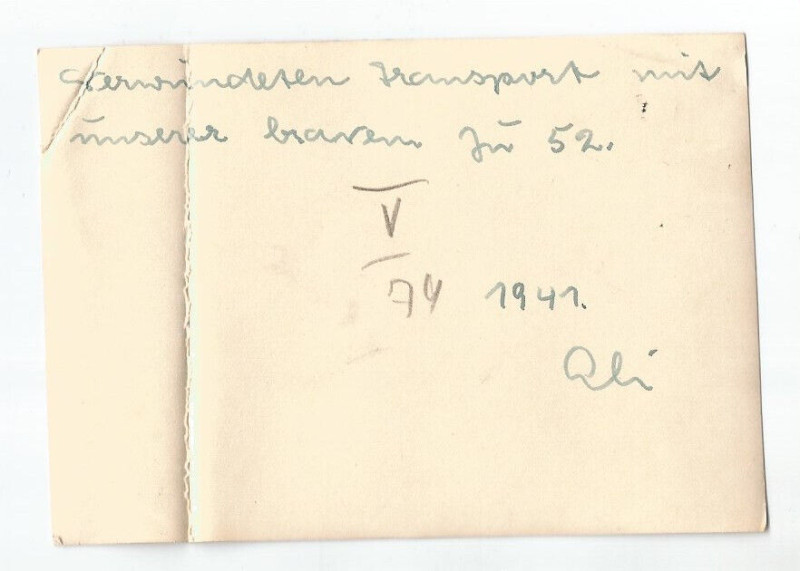 Verwundeten Transport mit
unserer braven Ju 52.
V
74 1941.